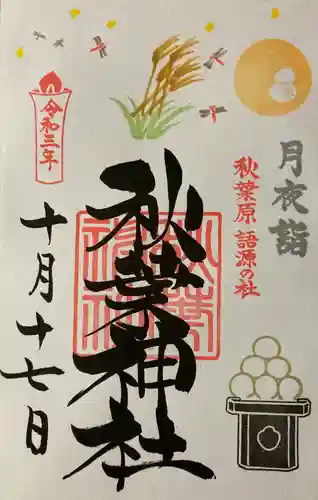 月夜詣
秋葉原 語源の社
秋葉神社
秋葉神社
令和三年
十月十七日